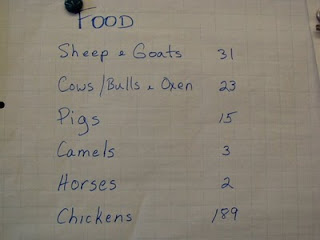 FOOD
Sheep & Goats 31
Cows/Bulls & Oxen 23
Pigs 15
Camels 3
Horses 2
Chickens 189